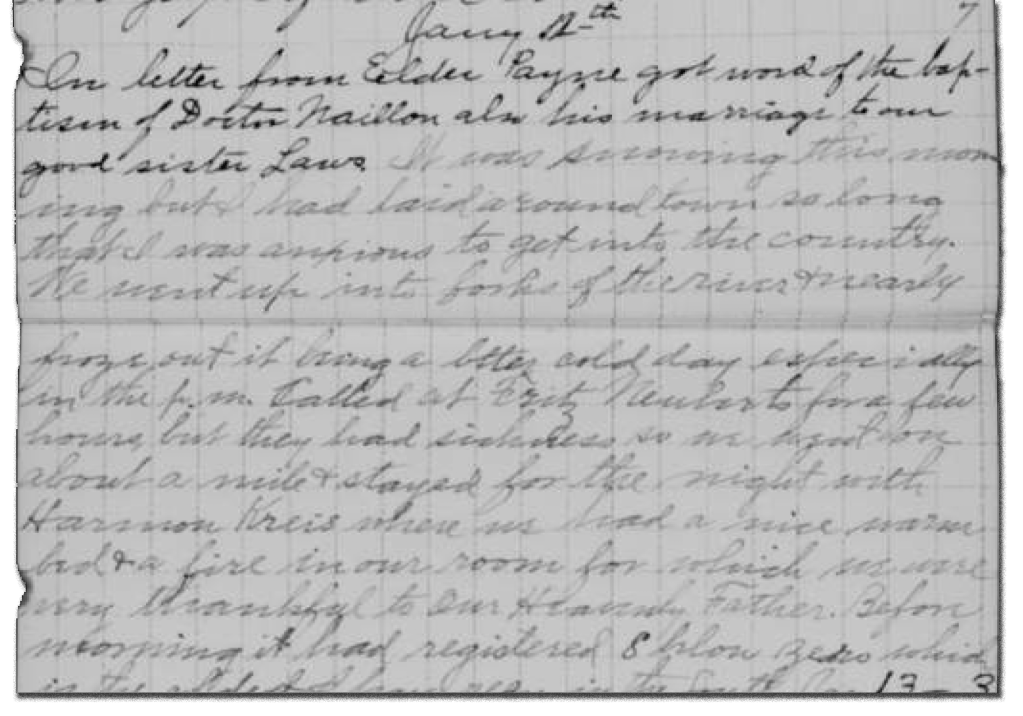 Jany 12th
7
In letter from Eelder Payne got word of the bap-
tism of Doctor Naillon also his marriage to our
good sister Laws. It was snowing this morn
ing but I had laid around town so long
that I was anxious to get into the country.
We went up into forks of the river & nearly
froze out it being a bitter cold day especially
in the p.m. Called at Fritz Neuberts for a few
hours, but they had sickness so we went on
about a mile & stayed for the night with
Harmon Kreis where we had a nice warm
bed & a fire in our room for which we were
very thankful to Our Heavenly Father. Before
morning it had registered 8 blow zero which
is the coldest I have seen in the South Jan 13 - 3